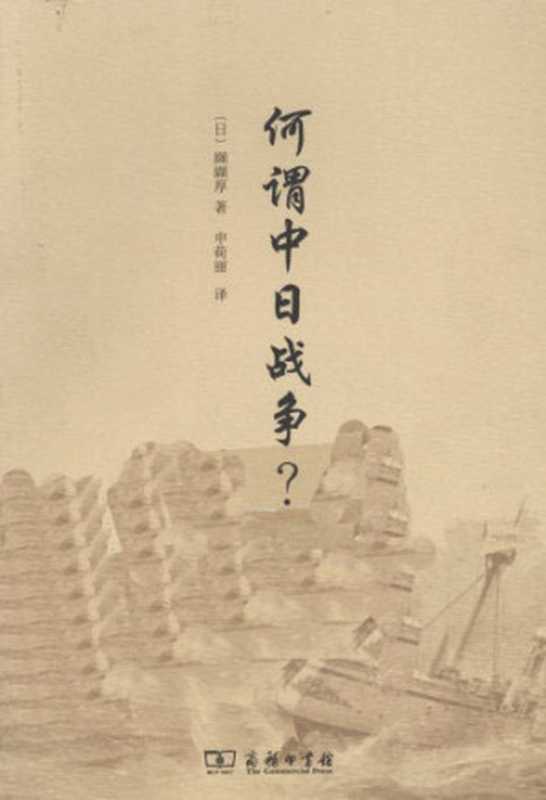 何谓中日战争?
〔日〕纐缬厚 著 申荷丽 译
商務印書館
The Commercial Press